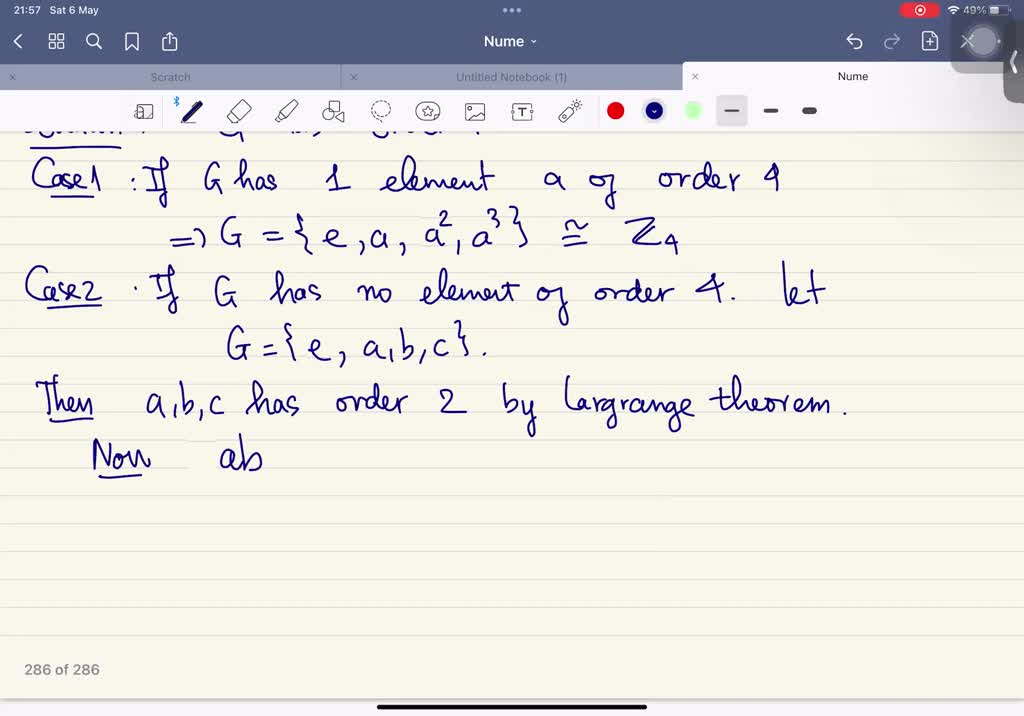 21:57 Sat 6 May
49%
Nume
Scratch
Untitled Notebook (1)
Nume
Case1 : If G has 1 element a of order 4
=> G = {e, a, a², a³} ≅ ℤ₄
Case2 . If G has no element of order 4. let
G = {e, a, b, c}.
Then a, b, c has order 2 by Largrange theorem.
Now ab
286 of 286